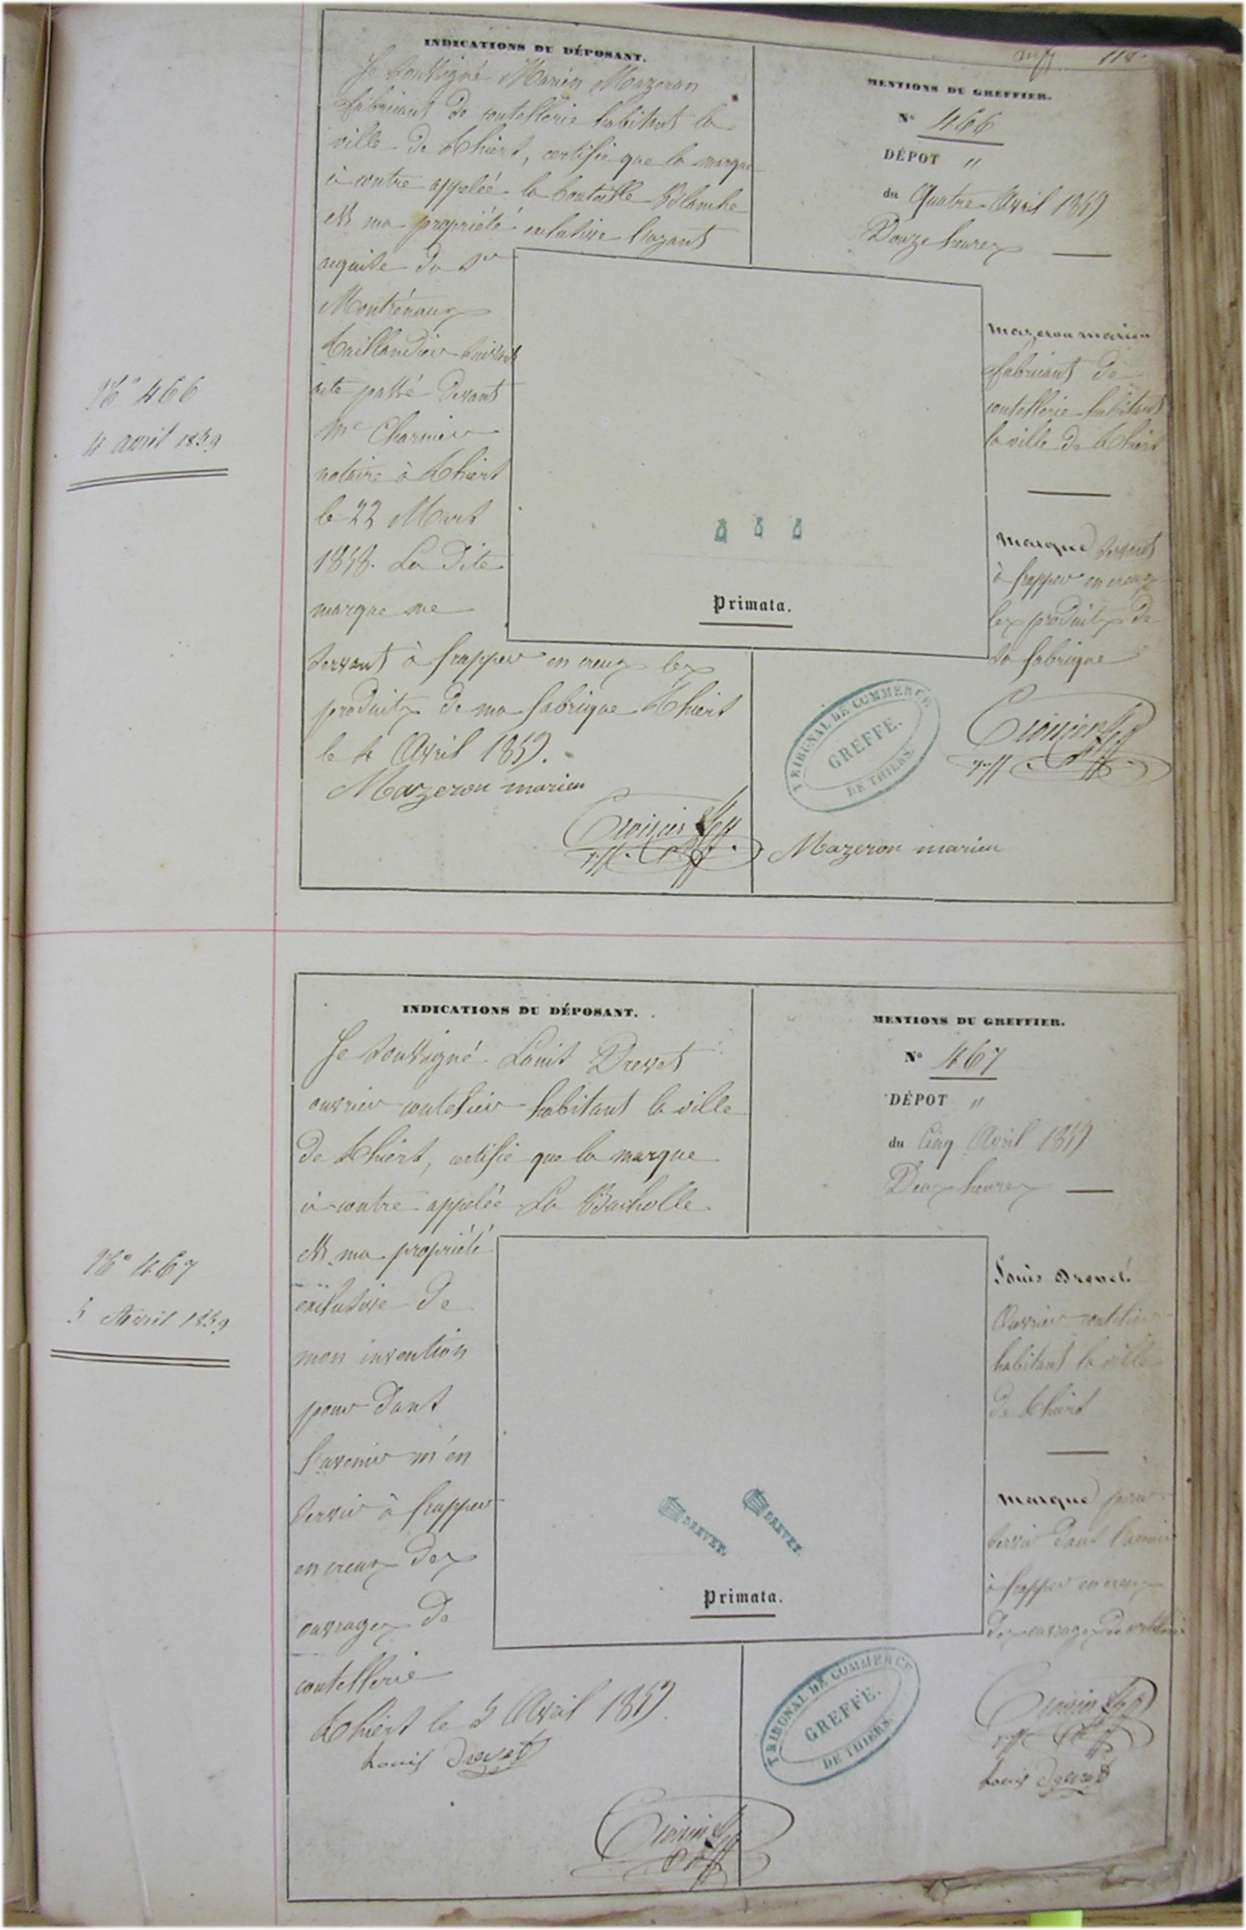 118.
N° 466
4 avril 1859
INDICATIONS DU DÉPOSANT.
Je soussigné Marien Mazeron
fabricant de coutellerie habitant la
ville de Thiers, certifie que la marque
ci contre appelée la bouteille Blanche
est ma propriété exclusive l'ayant
acquise du Sr
Montrénaux
taillandier suivant
acte passé devant
Me Charmier
notaire à Thiers
le 22 Mars
1858. La dite
marque me
servant à frapper en creux les
produits de ma fabrique Thiers
le 4 Avril 1859.
Mazeron marien
MENTIONS DU GREFFIER.
N° 466
DÉPOT "
du Quatre Avril 1859
Douze heures
mazeron marien
fabricant de
coutellerie habitant
la ville de Thiers
marque servant
à frapper en creux
les produits de
sa fabrique
Primata.
TRIBUNAL DE COMMERCE
GREFFE.
DE THIERS.
Mazeron marien
N° 467
5 Avril 1859
INDICATIONS DU DÉPOSANT.
Je soussigné Louis Drevet
ouvrier coutelier habitant la ville
de Thiers, certifie que la marque
ci contre appelée La Bacholle
est ma propriété
exclusive de
mon invention
pour dans
l'avenir m'en
servir à frapper
en creux des
ouvrages de
coutellerie
Thiers le 5 Avril 1859.
Louis Drevet
MENTIONS DU GREFFIER.
N° 467
DÉPOT "
du Cinq Avril 1859
Deux heures
Louis Drevet
Ouvrier coutelier
habitant la ville
de Thiers
marque pour
servir dans l'avenir
à frapper en creux
des ouvrages de coutellerie
DREVET.
DREVET.
Primata.
TRIBUNAL DE COMMERCE
GREFFE.
DE THIERS.
Louis Drevet